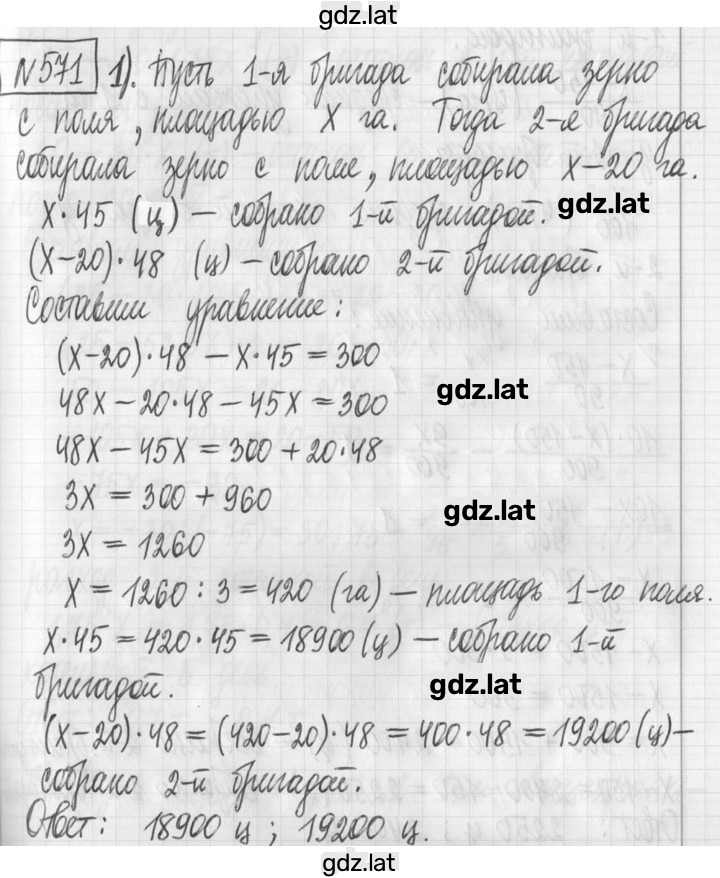 gdz.lat
№571 1). Пусть 1-я бригада собирала зерно
с поля, площадью х га. Тогда 2-я бригада
собирала зерно с поля, площадью х-20 га.
х·45 (ц) – собрано 1-й бригадой. gdz.lat
(х-20)·48 (ц) – собрано 2-й бригадой.
Составим уравнение:
(х-20)·48 - х·45 = 300
gdz.lat
48х - 20·48 - 45х = 300
48х - 45х = 300 + 20·48
3х = 300 + 960
gdz.lat
3х = 1260
х = 1260 : 3 = 420 (га) – площадь 1-го поля.
х·45 = 420·45 = 18900 (ц) – собрано 1-й
бригадой. gdz.lat
(х-20)·48 = (420-20)·48 = 400·48 = 19200 (ц) –
собрано 2-й бригадой.
Ответ: 18900 ц; 19200 ц.
gdz.lat